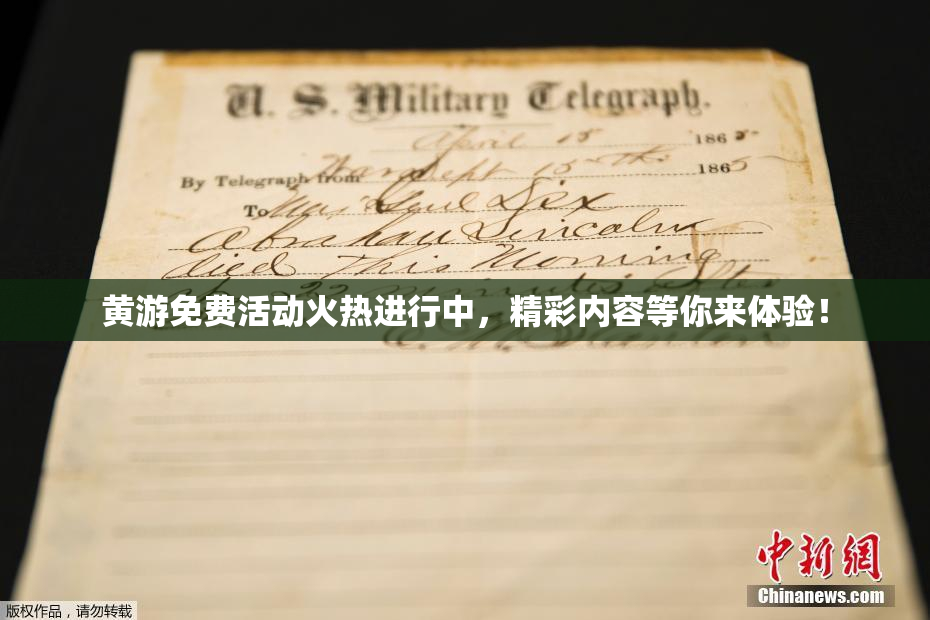 U. S. Military Telegraph.
April 15 1865
By Telegraph from War Dept 15th 1865
To Maj Genl Dix
Abraham Lincoln
died This Morning
22 minutes after
黄游免费活动火热进行中，精彩内容等你来体验！
中新網
Chinanews.com
版权作品，请勿转载